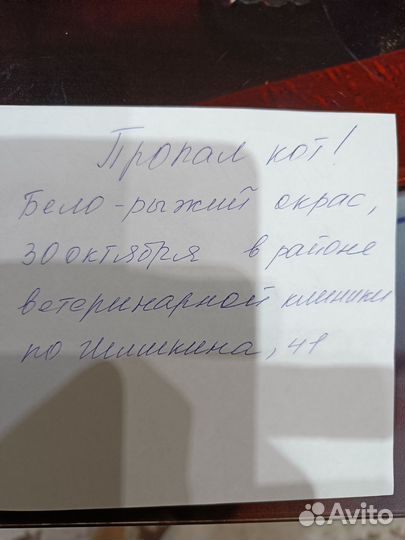 Пропал кот!
Бело-рыжий окрас,
30 октября в районе
ветеринарной клиники
по Шишкина, 41
Avito